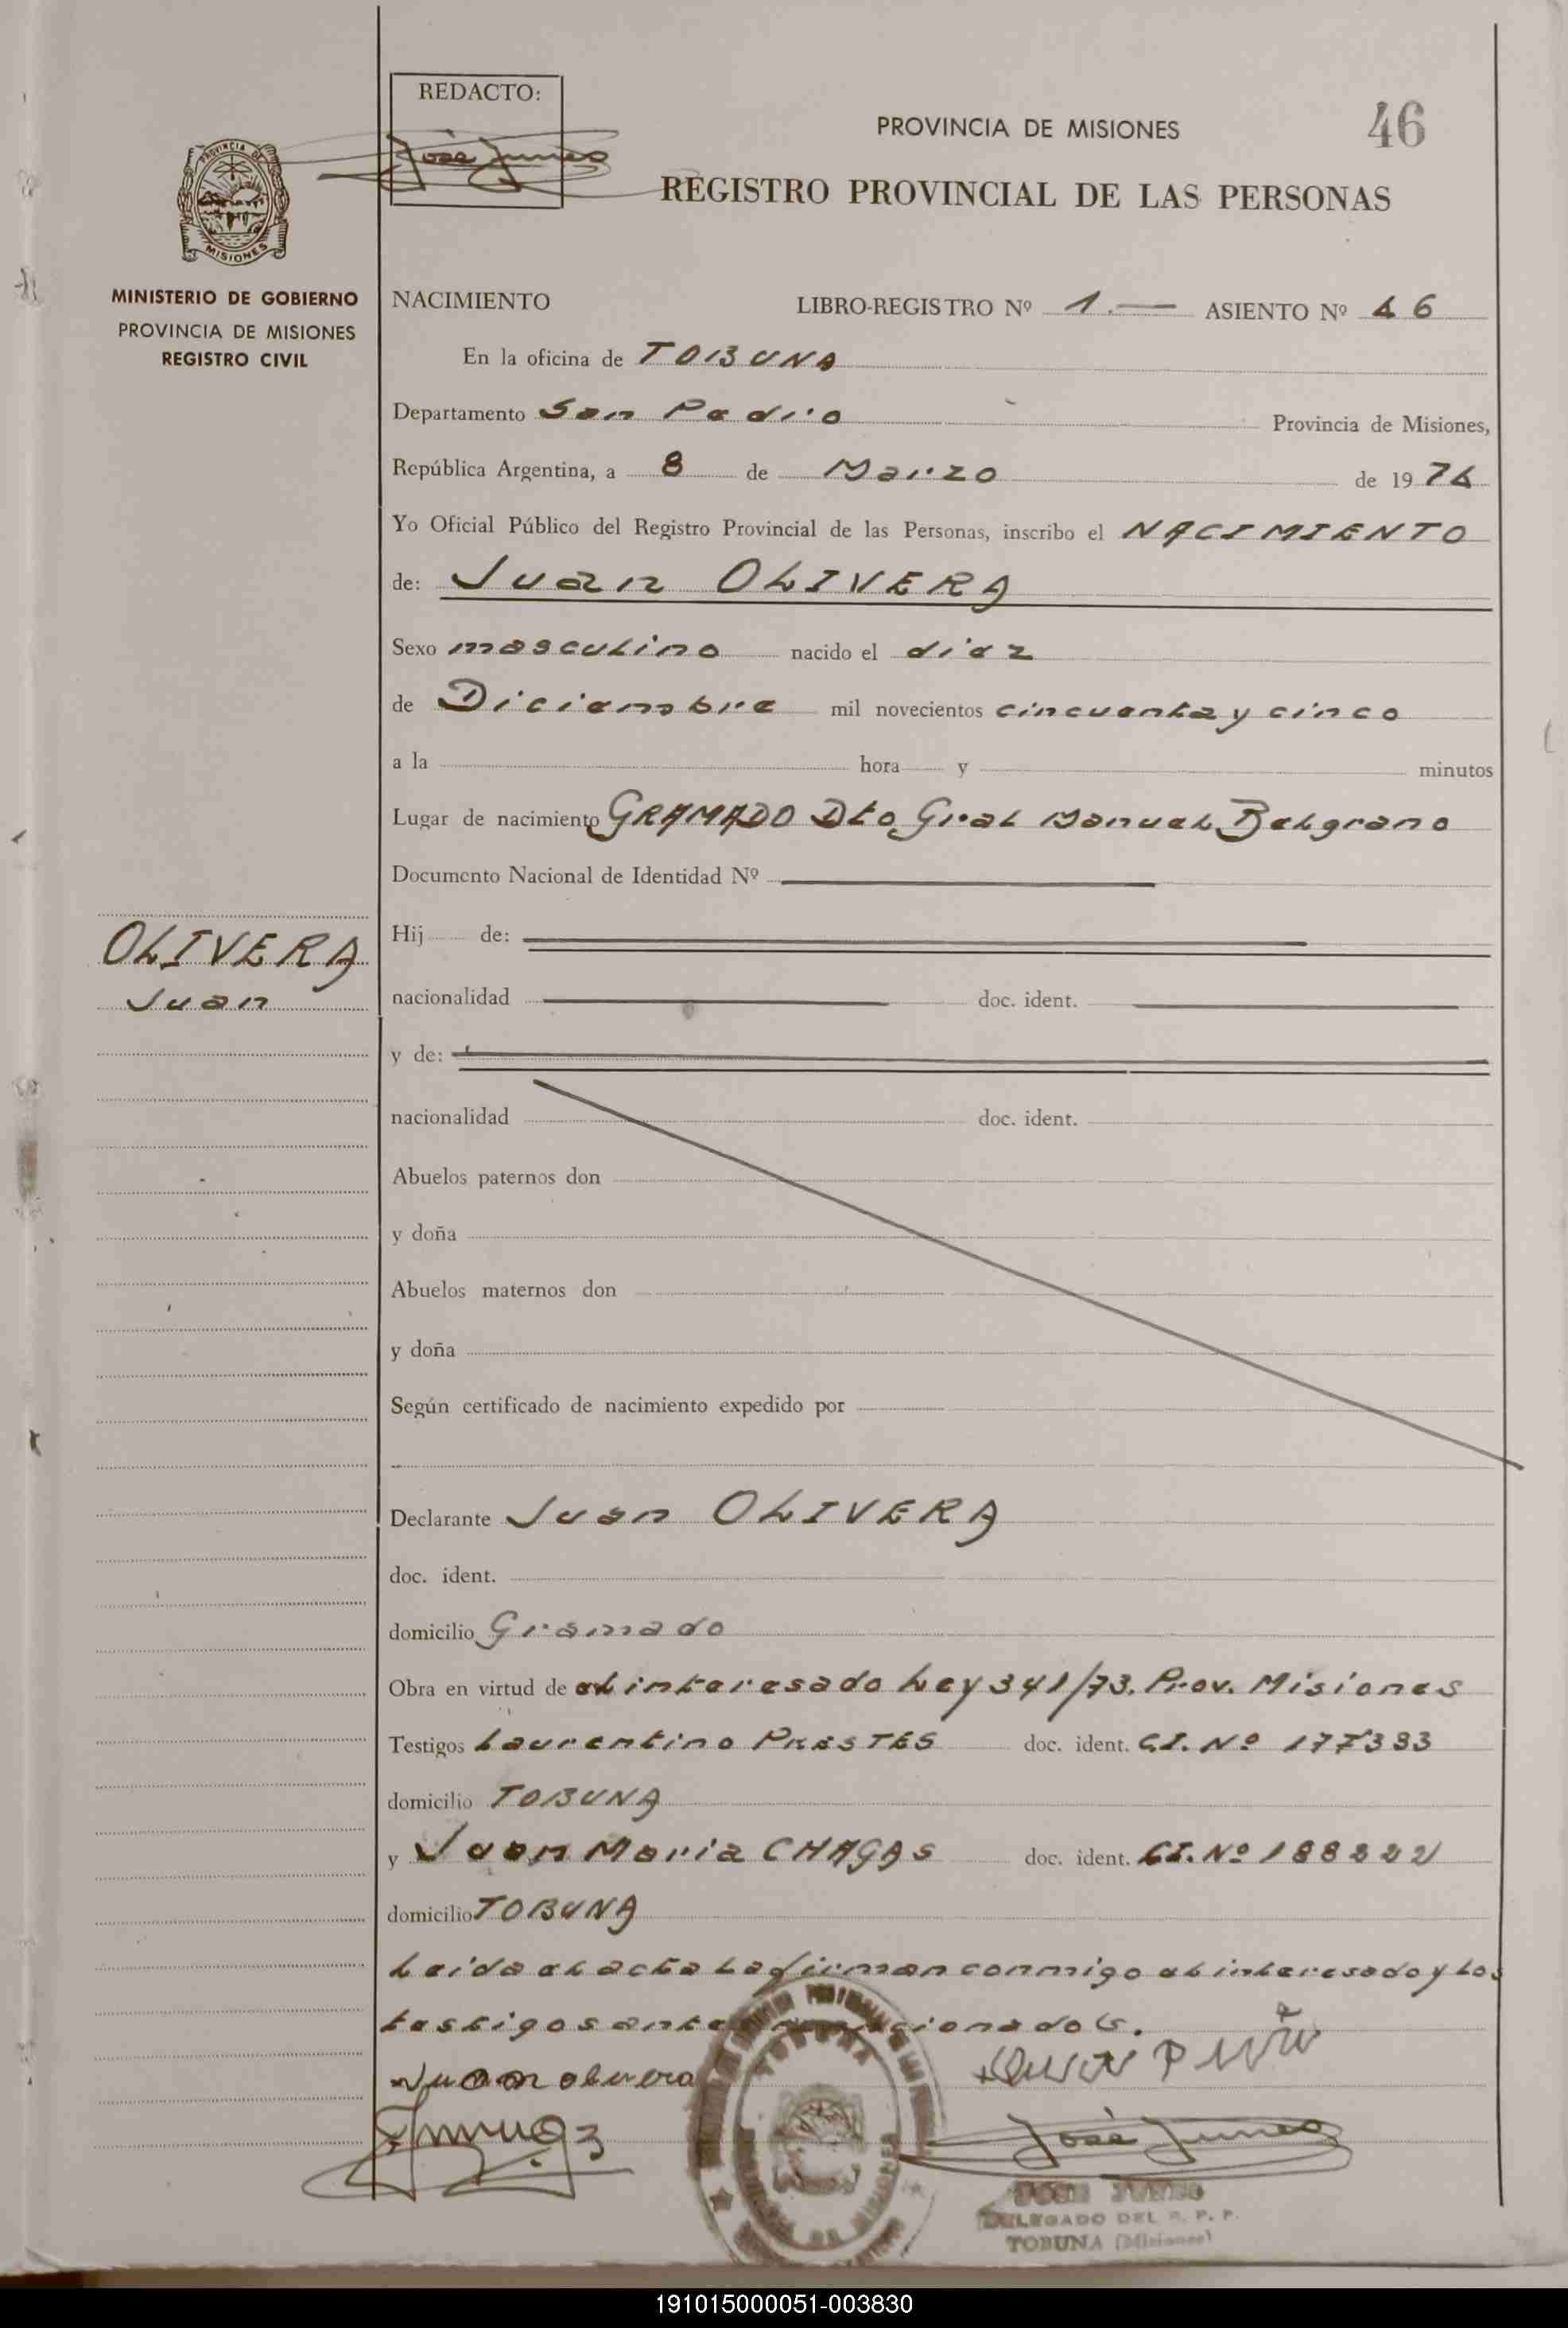 REDACTO:
José Junes
PROVINCIA DE MISIONES
46
REGISTRO PROVINCIAL DE LAS PERSONAS
PROVINCIA DE
MISIONES
MINISTERIO DE GOBIERNO
PROVINCIA DE MISIONES
REGISTRO CIVIL
NACIMIENTO LIBRO-REGISTRO Nº 1.— ASIENTO Nº 46
En la oficina de TOBUNA
Departamento San Pedro Provincia de Misiones,
República Argentina, a 8 de Marzo de 1974
Yo Oficial Público del Registro Provincial de las Personas, inscribo el NACIMIENTO
de: Juan OLIVERA
Sexo masculino nacido el diez
de Diciembre mil novecientos cincuenta y cinco
a la hora y minutos
Lugar de nacimiento GRAMADO Dto Gral Manuel Belgrano
Documento Nacional de Identidad Nº
OLIVERA
Juan
Hij de:
nacionalidad doc. ident.
y de:
nacionalidad doc. ident.
Abuelos paternos don
y doña
Abuelos maternos don
y doña
Según certificado de nacimiento expedido por
Declarante Juan OLIVERA
doc. ident.
domicilio Gramado
Obra en virtud de el interesado Ley 341/73. Prov. Misiones
Testigos Laurentino PRESTES doc. ident. C.I. Nº
domicilio TOBUNA
y Juan Maria CHAGAS doc. ident. C.I. Nº
domicilio TOBUNA
Leida el acta la firman conmigo el interesado y los
testigos antes mencionados.
Juan olivera
José Junes
DELEGADO DEL R. P. P.
TOBUNA (Misiones)
191015000051-003830